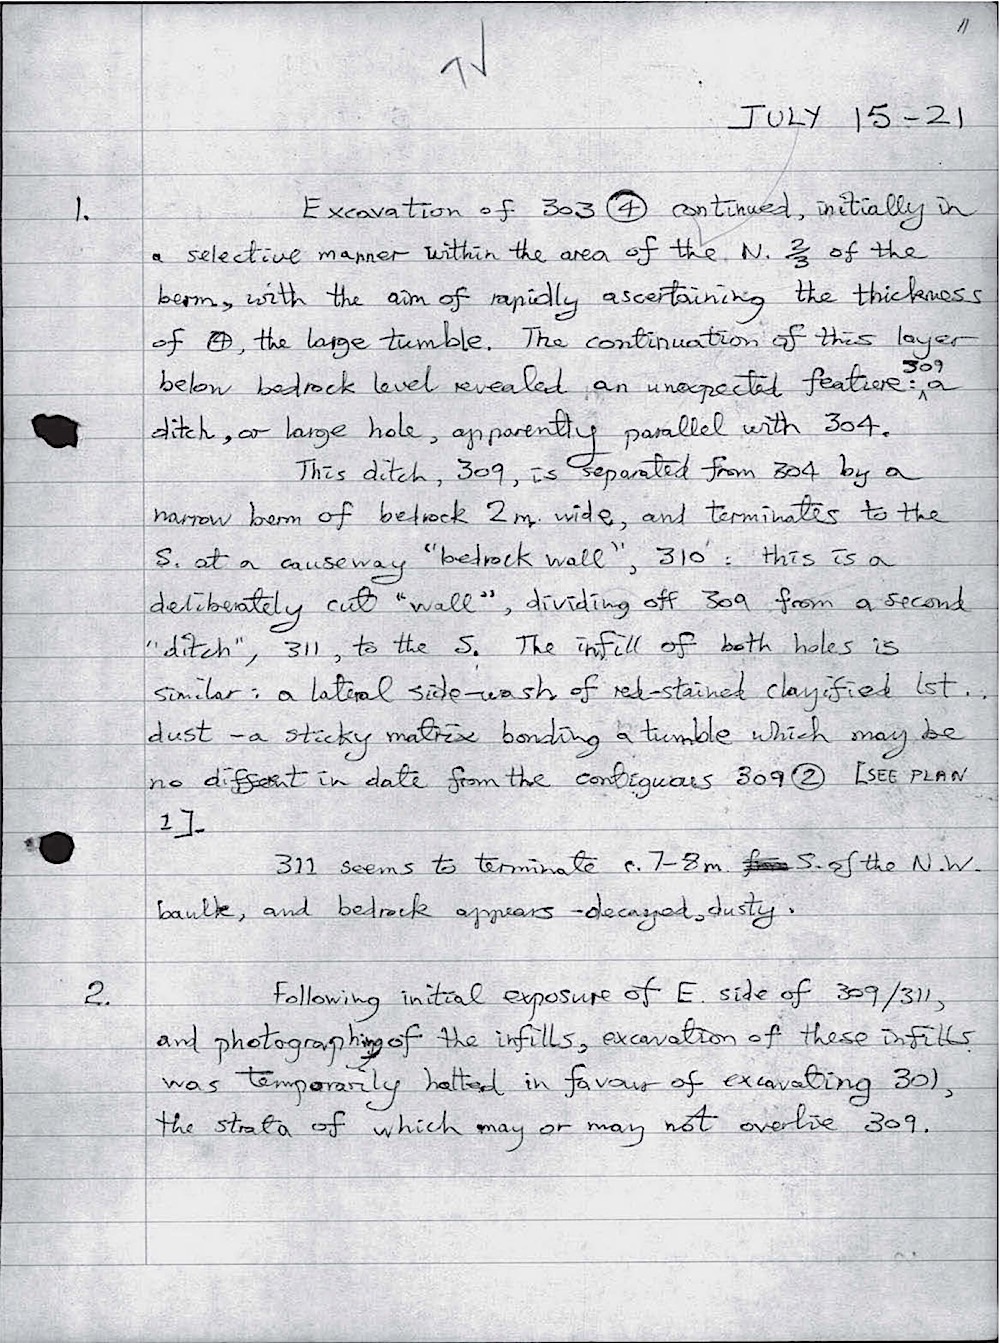 11
JULY 15-21
1. Excavation of 303 ④ continued, initially in
a selective manner within the area of the N. 2/3 of the
berm, with the aim of rapidly ascertaining the thickness
of ④, the large tumble. The continuation of this layer
below bedrock level revealed an unexpected feature: 309 a
ditch, or large hole, apparently parallel with 304.
This ditch, 309, is separated from 304 by a
narrow berm of bedrock 2m. wide, and terminates to the
S. at a causeway "bedrock wall", 310: this is a
deliberately cut "wall", dividing off 309 from a second
"ditch", 311, to the S. The infill of both holes is
similar: a lateral side-wash of red-stained clayified lst.
dust - a sticky matrix bonding a tumble which may be
no different in date from the contiguous 309 ② [SEE PLAN
1].
311 seems to terminate c. 7-8m. S. of the N.W.
baulk, and bedrock appears - decayed, dusty.
2. Following initial exposure of E. side of 309/311,
and photographing of the infills, excavation of these infills
was temporarily halted in favour of excavating 301,
the strata of which may or may not overlie 309.